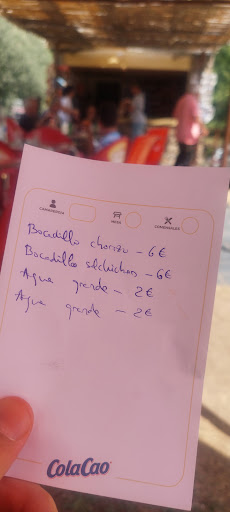 CAMARERO/A
MESA
COMENSALES
Bocadillo chorizo - 6€
Bocadillo salchichon - 6€
Agua grande - 2€
Agua grande - 2€
ColaCao